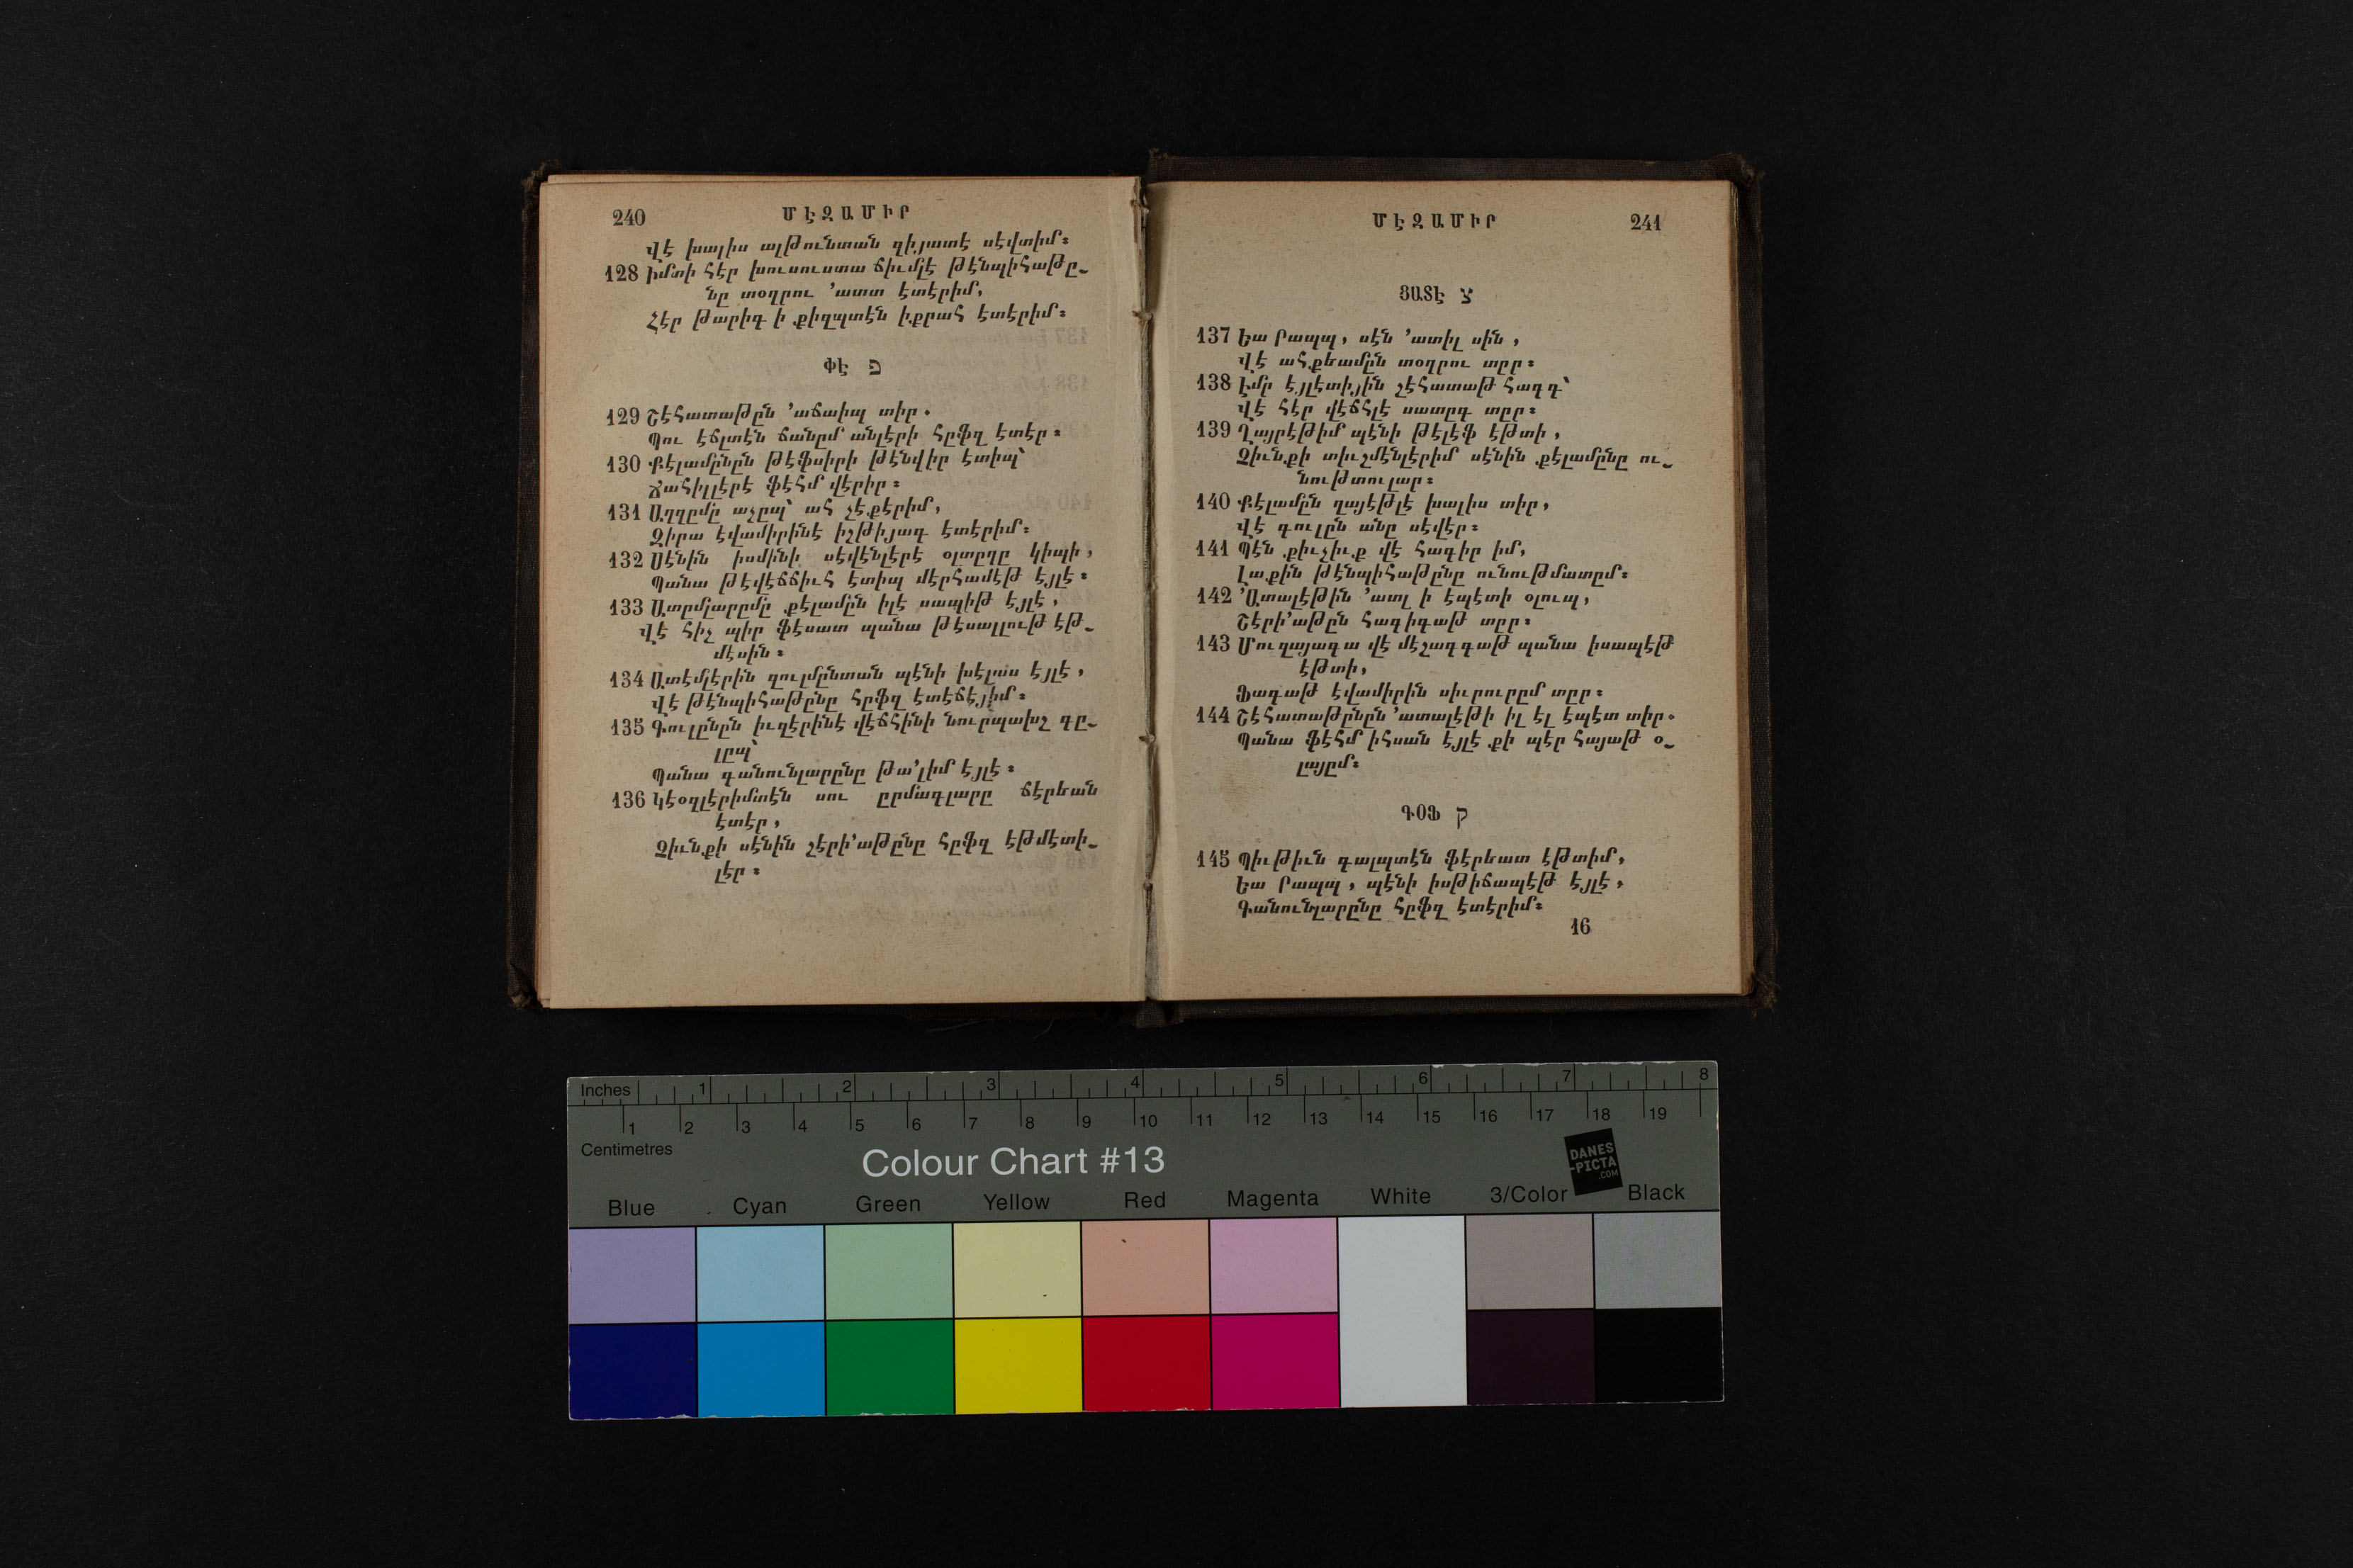 240 ՄԷԶԱՄԻՐ
Վէ խալիս ալթունտան զիյատէ սէվտիմ։
128 Իմտի հէր խուսուստա ճիւմլէ թէնպիհաթը֊
նը տօղրու ՚ատտ էտէրիմ,
Հէր թարիգ ի քիզպտէն իքրահ էտէրիմ։
ՓԷ פ
129 Շէհատաթըն ՚աճաիպ տիր.
Պու էճլտէն ճանըմ անլէրի հըֆզ էտէր։
130 Քէլամընըն թէֆսիրի թէնվիր էտիպ՝
Ճահիլլէրէ ֆէհմ վէրիր։
131 Աղզըմը աչըպ՝ ահ չէքէրիմ,
Զիրա էվամիրինէ իշթիյագ էտէրիմ։
132 Սէնին իսմինի սէվէնլէրէ օլտըղը կիպի,
Պանա թէվէճճիւհ էտիպ մէրհամէթ էյլէ։
133 Ատըմլարըմը քէլամըն իլէ սապիթ էյլէ,
Վէ հիչ պիր ֆէսատ պանա թէսալլութ էթ֊
մէսին։
134 Ատէմլէրին զուլմընտան պէնի խէլաս էյլէ,
Վէ թէնպիհաթընը հըֆզ էտէճէյիմ։
135 Գուլընըն իւզէրինէ վէճհինի նուրպախշ գը֊
լըպ՝
Պանա գանունլարընը թա՚լիմ էյլէ։
136 Կէօզլէրիմտէն սու ըրմագլարը ճէրեան
էտէր,
Չիւնքի սէնին շէրի՚աթընը հըֆզ էթմէտի֊
լէր։
ՄԷԶԱՄԻՐ 241
ՅԱՏԷ צ
137 Եա Րապպ, սէն ՚ատիլ սին,
Վէ ահքեամըն տօղրու տըր։
138 Էմր էյլէտիյին շէհատաթ հագգ՝
Վէ հէր վէճհլէ սատըգ տըր։
139 Ղայրէթիմ պէնի թէլէֆ էթտի,
Չիւնքի տիւշմէնլէրիմ սէնին քէլամընը ու֊
նութտուլար։
140 Քէլամըն ղայէթլէ խալիս տիր,
Վէ գուլըն անը սէվէր։
141 Պէն քիւչիւք վէ հագիր իմ,
Լաքին թէնպիհաթընը ունութմատըմ։
142 ՚Ատալէթին ՚ատլ ի էպէտի օլուպ,
Շէրի՚աթըն հագիգաթ տըր։
143 Մուզայագա վէ մէշագգաթ պանա իսապէթ
էթտի,
Ֆագաթ էվամիրին սիւրուրըմ տըր։
144 Շէհատաթընըն ՚ատալէթի իլ էլ էպէտ տիր.
Պանա ֆէհմ իհսան էյլէ քի պէր հայաթ օ֊
լայըմ։
ԳՕՖ ק
145 Պիւթիւն գալպտէն ֆէրեատ էթտիմ,
Եա Րապպ, պէնի իսթիճապէթ էյլէ,
Գանունլարընը հըֆզ էտէրիմ։
16
Inches 1 2 3 4 5 6 7 8
1 2 3 4 5 6 7 8 9 10 11 12 13 14 15 16 17 18 19
Centimetres
Colour Chart #13
DANES
-PICTA
.COM
Blue Cyan Green Yellow Red Magenta White 3/Color Black